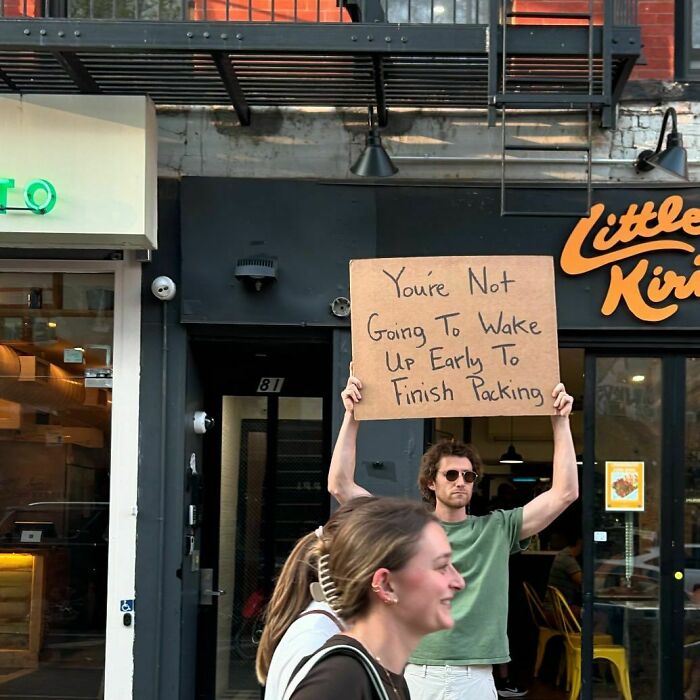 TO
Little
You're Not
Going To Wake
Up Early To
Finish Packing
81